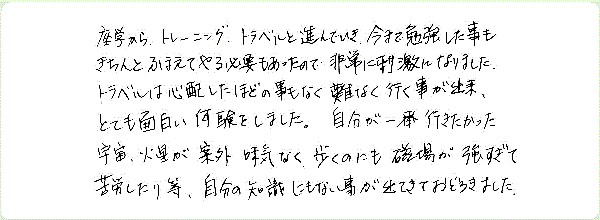 座学から、トレーニング、トラベルと進んでいき、今まで勉強した事も
きちんとふまえてやる必要もあったので、非常に刺激になりました。
トラベルは心配したほどの事もなく難なく行く事が出来、
とても面白い体験をしました。自分が一番行きたかった
宇宙、火星が案外味気なく、歩くのにも磁場が強すぎて
苦労したり等、自分の知識にもない事が出てきておどろきました。